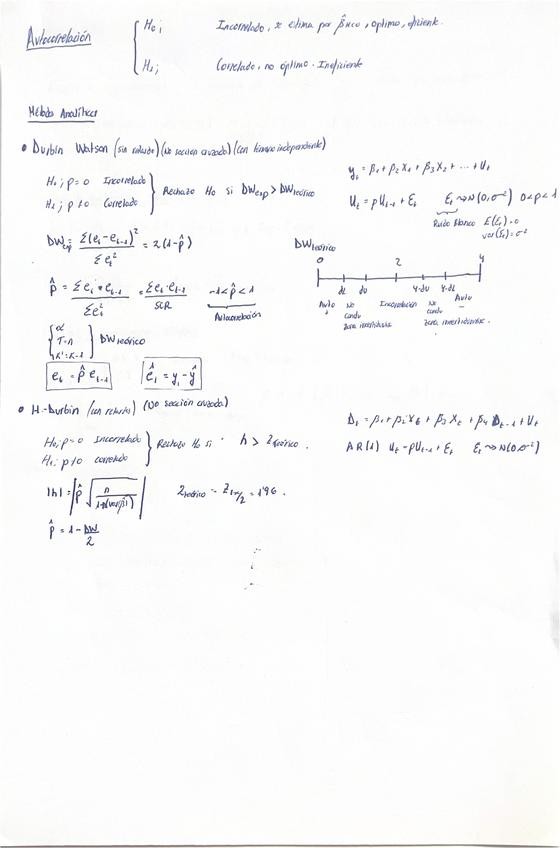 Autocorrelación
H₀; Incorrelado, se estima por β̂MCO, óptimo, eficiente.
H₁; Correlado, no óptimo. Ineficiente
Métodos Analíticos
• Durbin Watson (sin retardo) (No sección cruzada) (con término independiente)
H₀; ρ=0 Incorrelado
H₁; ρ≠0 Correlado
Rechazo H₀ si DWexp > DWteórico
y_t = β₁ + β₂X₁ + β₃X₂ + ... + U_t
U_t = ρU_{t-1} + ε_t ε_t ~> N(0, σ²) 0<ρ<1
Ruido Blanco E(ε_t)=0
var(ε_t)=σ²
DWexp = Σ(e_t - e_{t-1})² / Σe_t² = 2(1-ρ̂)
DWteórico
0 2 4
dL du 4-du 4-dL
Auto + No conclu zona incertidumbre Incorrelación No conclu zona incertidumbre Auto –
ρ̂ = Σe_t · e_{t-1} / Σe_t² = Σe_t · e_{t-1} / SCR -1<ρ̂<1
Autocorrelación
α
T=n
K'=K-1
DWteórico
e_t = ρ̂ e_{t-1} ê_t = y_t - ŷ
• H-Durbin (con retardo) (No sección cruzada)
H₀; ρ=0 Incorrelado
H₁; ρ≠0 correlado
Rechazo H₀ si h > Zteórico.
D_t = β₁ + β₂X_t + β₃X_t + β₄D_{t-1} + U_t
AR(1) U_t = ρU_{t-1} + ε_t ε_t ~> N(0, σ²)
|h| = |ρ̂ √(n / 1-n(var(β̂)))|
Zteórico = Z_{1-α/2} = 1'96.
ρ̂ = 1 - DW/2